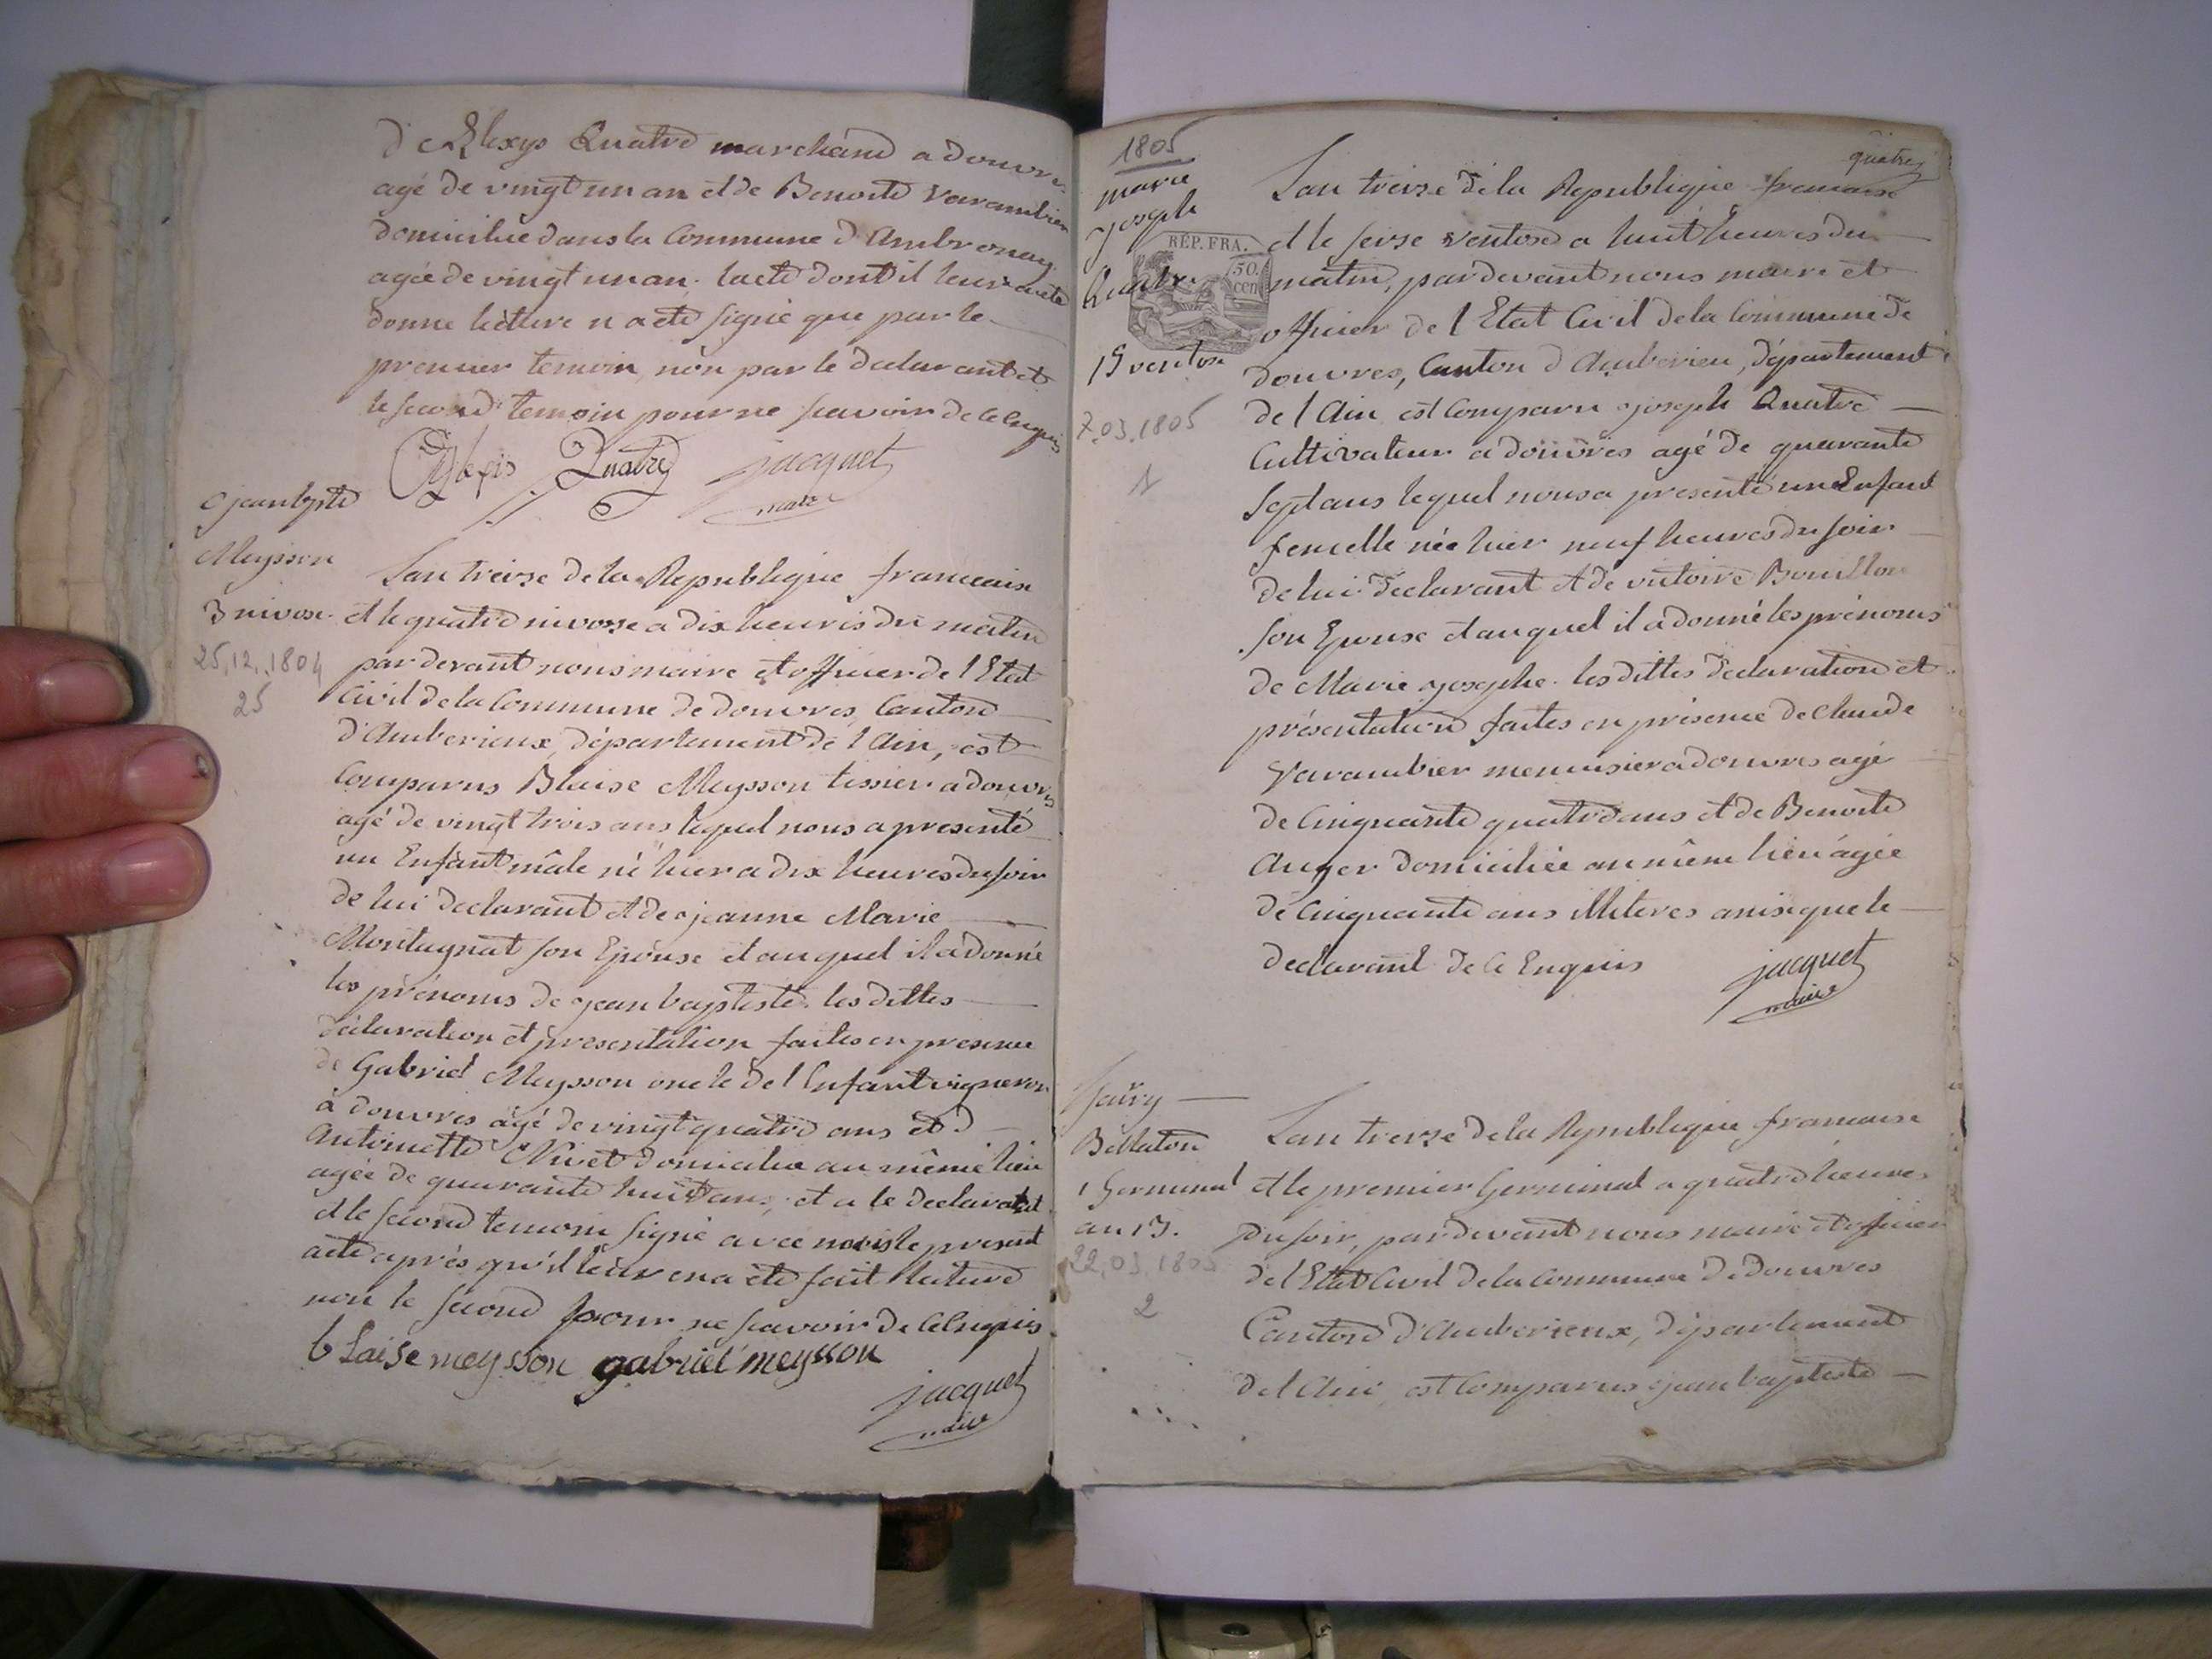 d'Alexys Quatre marchand a douvres
agé de vingt un an et de Benoite Varambier
domiciliée dans la Commune d'Ambronay
agée de vingt un an. lacte dont il leur a eté
donné lecture n a eté signé que par le
premier temoin, non par le declarant et
le second temoin pour ne scavoir de ce Enquis
Alexis Quatre jacquet
maire
jean bpte
Meysson
3 nivose
25.12.1804
25
Lan treize de la Republique francaise
et le quatre nivose a dix heures du matin
par devant nous maire et officier de l'Etat
Civil de la Commune de douvres, Canton
d'Amberieux, département de l'Ain, est
Comparus Blaise Meysson tissier a douvres
agé de vingt trois ans lequel nous a presenté
un Enfant mâle né hier a dix heures du soir
de lui declarant et de jeanne Marie
Montagnat son Epouse et auquel il a donné
les prénoms de jean baptiste. les dittes
déclaration et presentation faites en presence
de Gabriel Meysson oncle de l Enfant vigneron
à douvres âgé de vingt quatre ans et d
antoinette Nivet domiciliée au même lieu
agée de quarante huit ans, et a le declarant
et le second temoin signé avec nous le present
acte après qu'il leur en a eté fait lecture
non le second pour ne scavoir de ce Enquis
blaise meysson gabriel meysson
jacquet
maire
1805
marie
joseph
Quatre
15 ventose
7.03.1805
1
quatre
RÉP. FRA.
50.
cen
Lan treize de la Republique francaise
et le seize Ventose a huit heures du
matin, par devant nous maire et
officier de l Etat Civil de la Commune de
douvres, Canton d'Amberieu, département
de l Ain est Comparu joseph Quatre
Cultivateur a douvres agé de quarante
sept ans lequel nous a presenté un Enfant
femelle née hier neuf heures du soir
de lui declarant et de victoire Bouillon
son Epouse et auquel il a donné les prénoms
de Marie josephe. les dittes declaration et
présentation faites en présence de Claude
Varambier menuisier a douvres agé
de Cinquante quatre ans et de Benoite
Auger domiciliée au même lieu âgée
de Cinquante ans illiteres ainsi que le
declarant de ce Enquis
jacquet
maire
Bellaton
1 Germinal
an 13.
22.03.1805
2
Lan treize de la Republique francaise
et le premier Germinal a quatre heures
du soir, par devant nous maire et officier
de l Etat Civil de la Commune de douvres
Canton d'Amberieux, département
de l Ain est Comparus jean baptiste